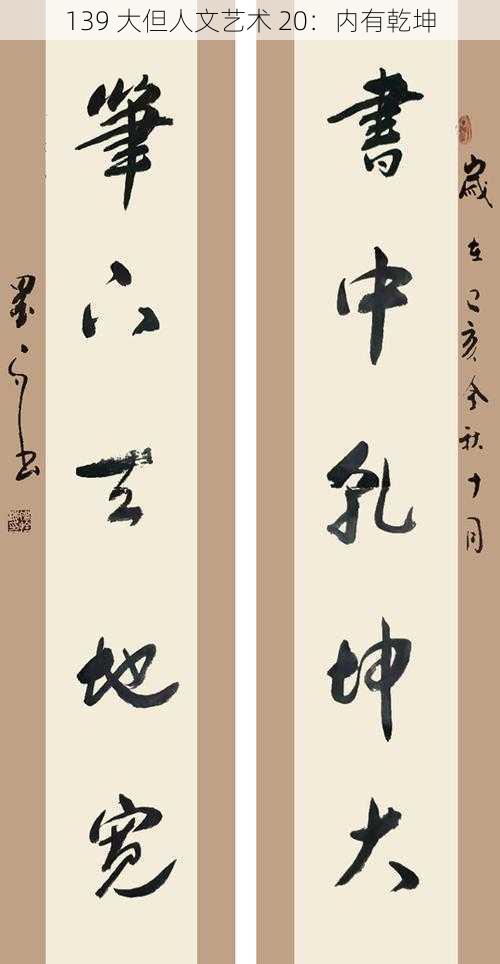 139 大但人文艺术 20：内有乾坤
歲在己亥金秋十月
書中乾坤大
筆下天地寬